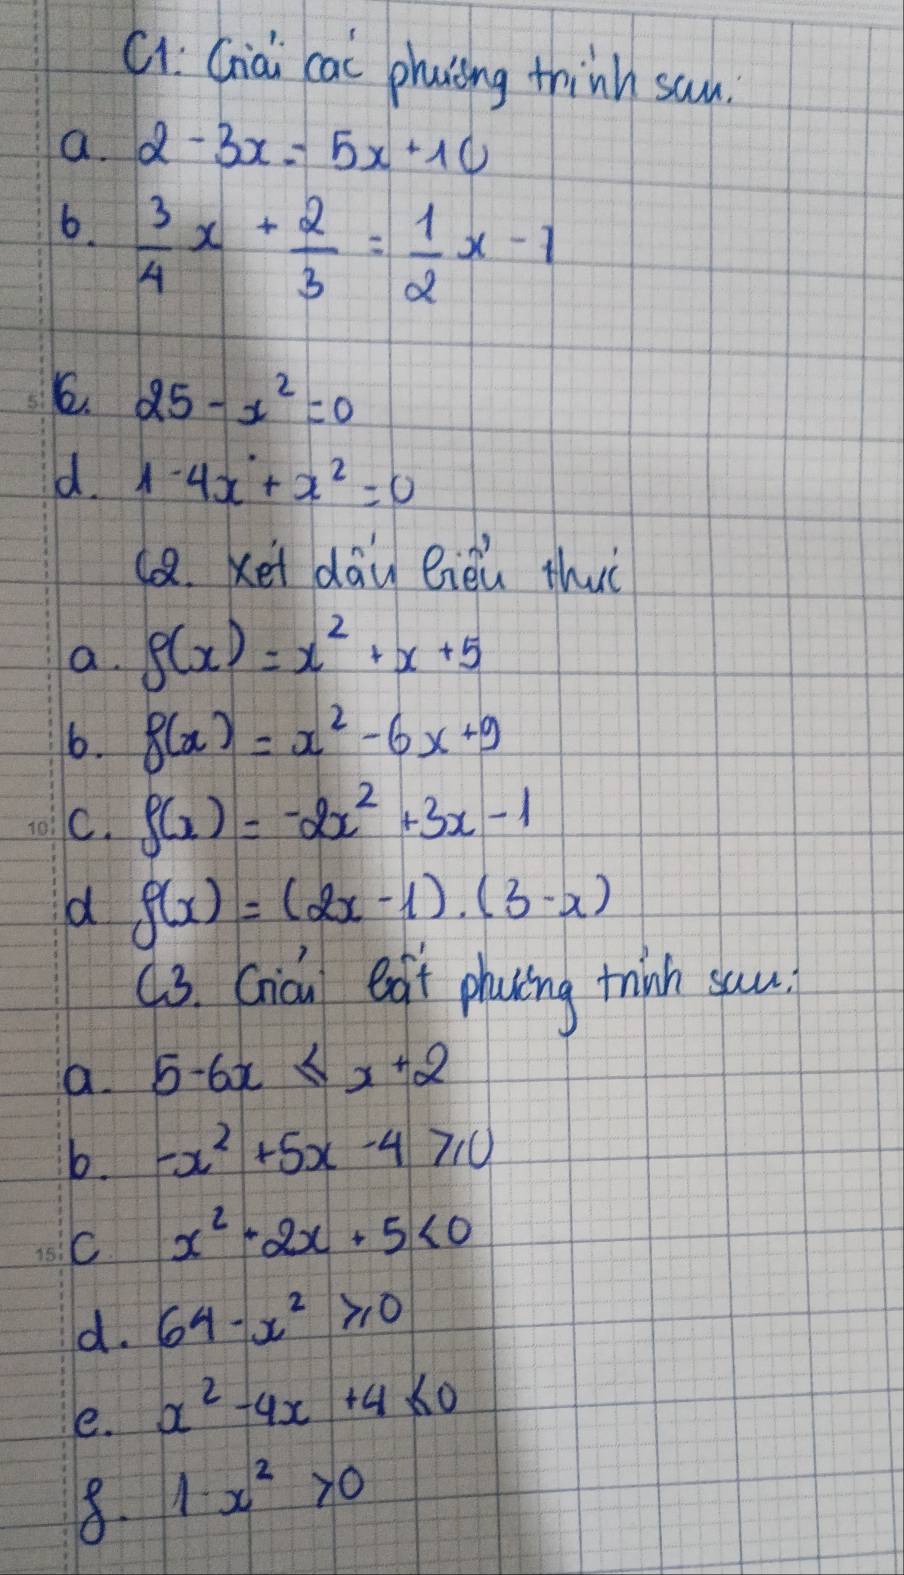 C1: Giải các phương trình sau:
a. 2 - 3x = 5x + 10
b. 3/4 x + 2/3 = 1/2 x - 1
c. 25 - x² = 0
d. 1 - 4x + x² = 0
C2. Xét dấu biểu thức
a. f(x) = x² + x + 5
b. f(x) = x² - 6x + 9
c. f(x) = -2x² + 3x - 1
d f(x) = (2x - 1).(3 - x)
C3. Giải bất phương trình sau:
a. 5 - 6x ≤ x + 2
b. -x² + 5x - 4 ≥ 0
c x² + 2x + 5 < 0
d. 64 - x² ≥ 0
e. x² - 4x + 4 ≤ 0
f. 1 - x² > 0
5
10
15